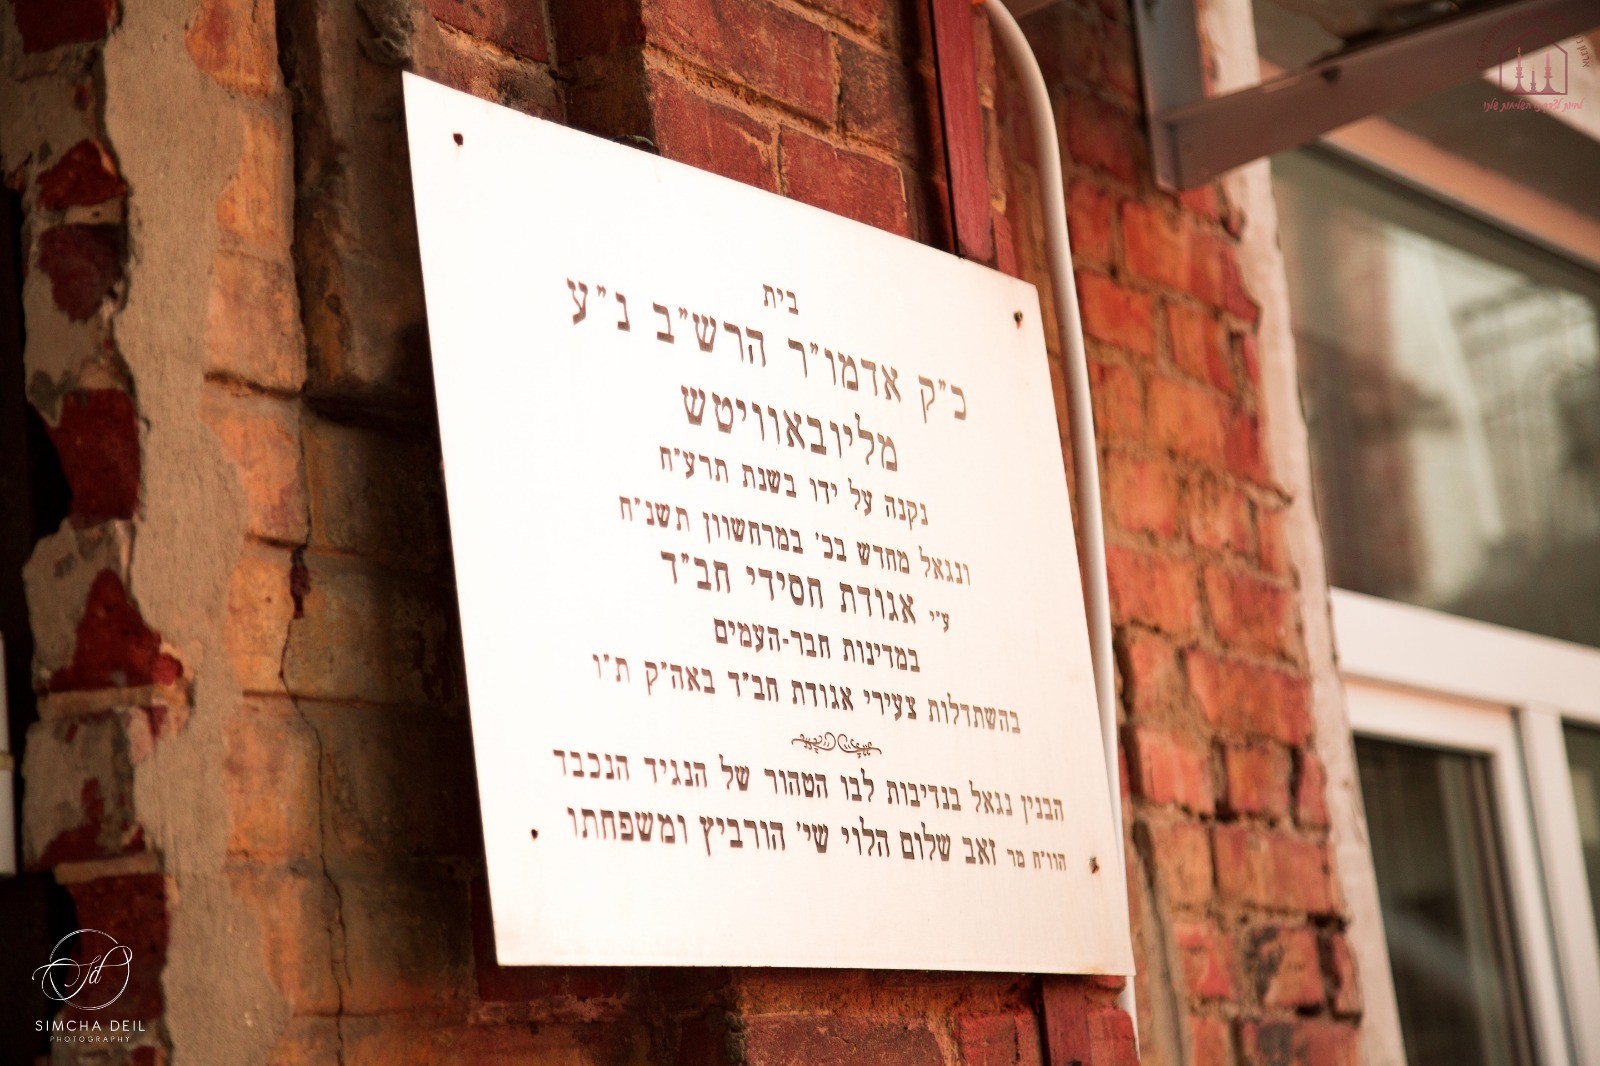 בית
כ"ק אדמו"ר הרש"ב נ"ע
מליובאוויטש
נקנה על ידו בשנת תרע"ח
ונגאל מחדש בכ' במרחשוון תשנ"ח
ע"י אגודת חסידי חב"ד
במדינות חבר-העמים
בהשתדלות צעירי אגודת חב"ד באה"ק ת"ו
הבנין נגאל בנדיבות לבו הטהור של הנגיד הנכבד
הוו"ח מר זאב שלום הלוי שי' הורביץ ומשפחתו
Sd
SIMCHA DEIL
PHOTOGRAPHY